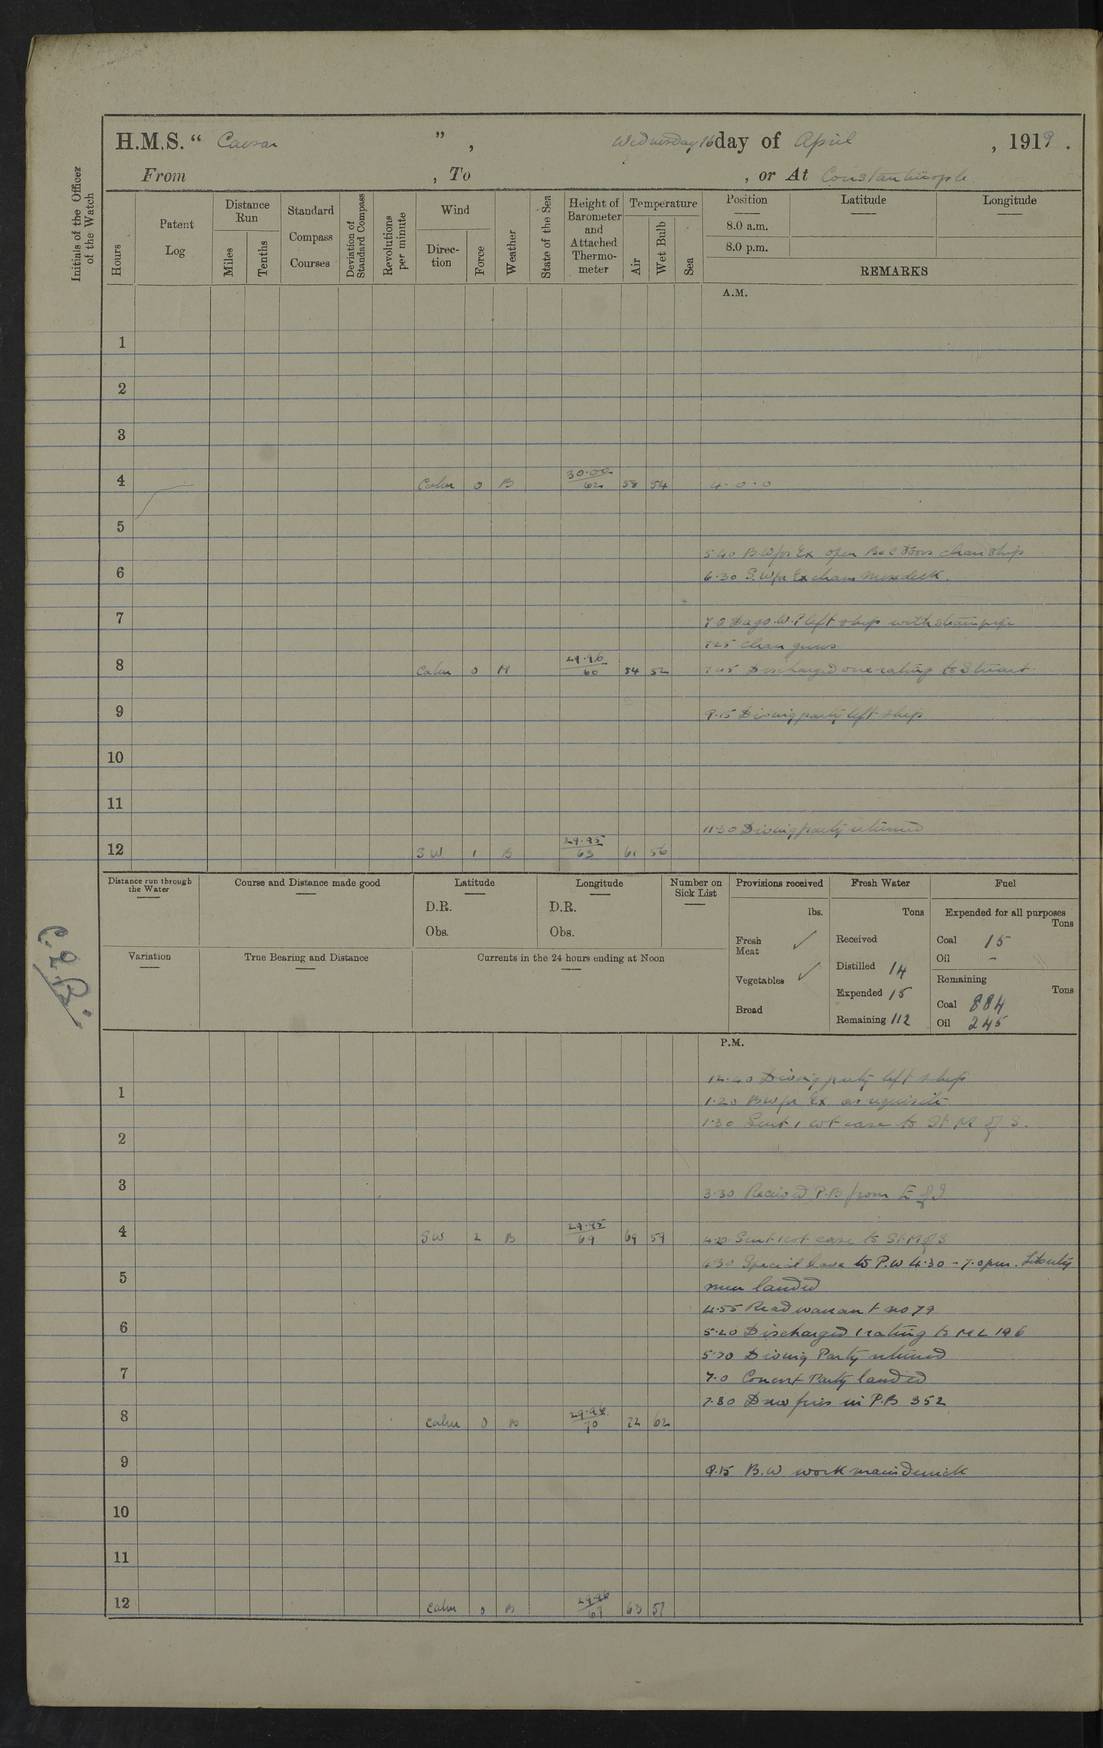 H.M.S. " Caesar ", Wednesday 16 day of April, 1919.
From , To , or At Constantinople
Initials of the Officer of the Watch
Hours
Patent Log
Distance Run
Miles
Tenths
Standard Compass Courses
Deviation of Standard Compass
Revolutions per minute
Wind
Direction
Force
Weather
State of the Sea
Height of Barometer and Attached Thermometer
Temperature
Air
Wet Bulb
Sea
Position
8.0 a.m.
8.0 p.m.
Latitude
Longitude
REMARKS
A.M.
1
2
3
4 Calm 0 B 30.00 62 58 54 4.0.0
5
5.40 Ex open doors clean ship
6
6.30 Ex clean Messdeck.
7
7.0 left ship with steam pipe
7.25 Clean guns
8 Calm 0 M 29.96 60 54 52 7.45 Discharged one rating to Stuart
9
9.15 Diving party left ship
10
11
11.30 Diving party returned
12 SW 1 B 29.95 63 61 56
Distance run through the Water
Course and Distance made good
Latitude
D.R.
Obs.
Longitude
D.R.
Obs.
Number on Sick List
Provisions received
lbs.
Fresh Meat ✓
Vegetables ✓
Bread
Fresh Water
Tons
Received
Distilled 14
Expended 15
Remaining 112
Fuel
Expended for all purposes
Tons
Coal 15
Oil –
Remaining
Tons
Coal 884
Oil 245
Variation
True Bearing and Distance
Currents in the 24 hours ending at Noon
P.M.
12.40 Diving party left ship
1
1.20 Ex as requisite
1.30 Sent 1 cot case to
2
3
3.30 Received P.B from
4 SW 2 B 29.95 69 69 59 Sent 1 cot case to
4.30 Special leave to P.W 4.30 – 7.0 pm. Liberty
5
men landed
4.55 Read warrant no 79
6
5.20 Discharged 1 rating to ML 196
5.30 Diving Party returned
7
7.0 Concert Party landed
7.30 Drew fires in P.B 352
8 Calm 0 B 70 72 62
9
9.15 B.W work main derrick
10
11
12 Calm 0 B 29.96 67 63 57